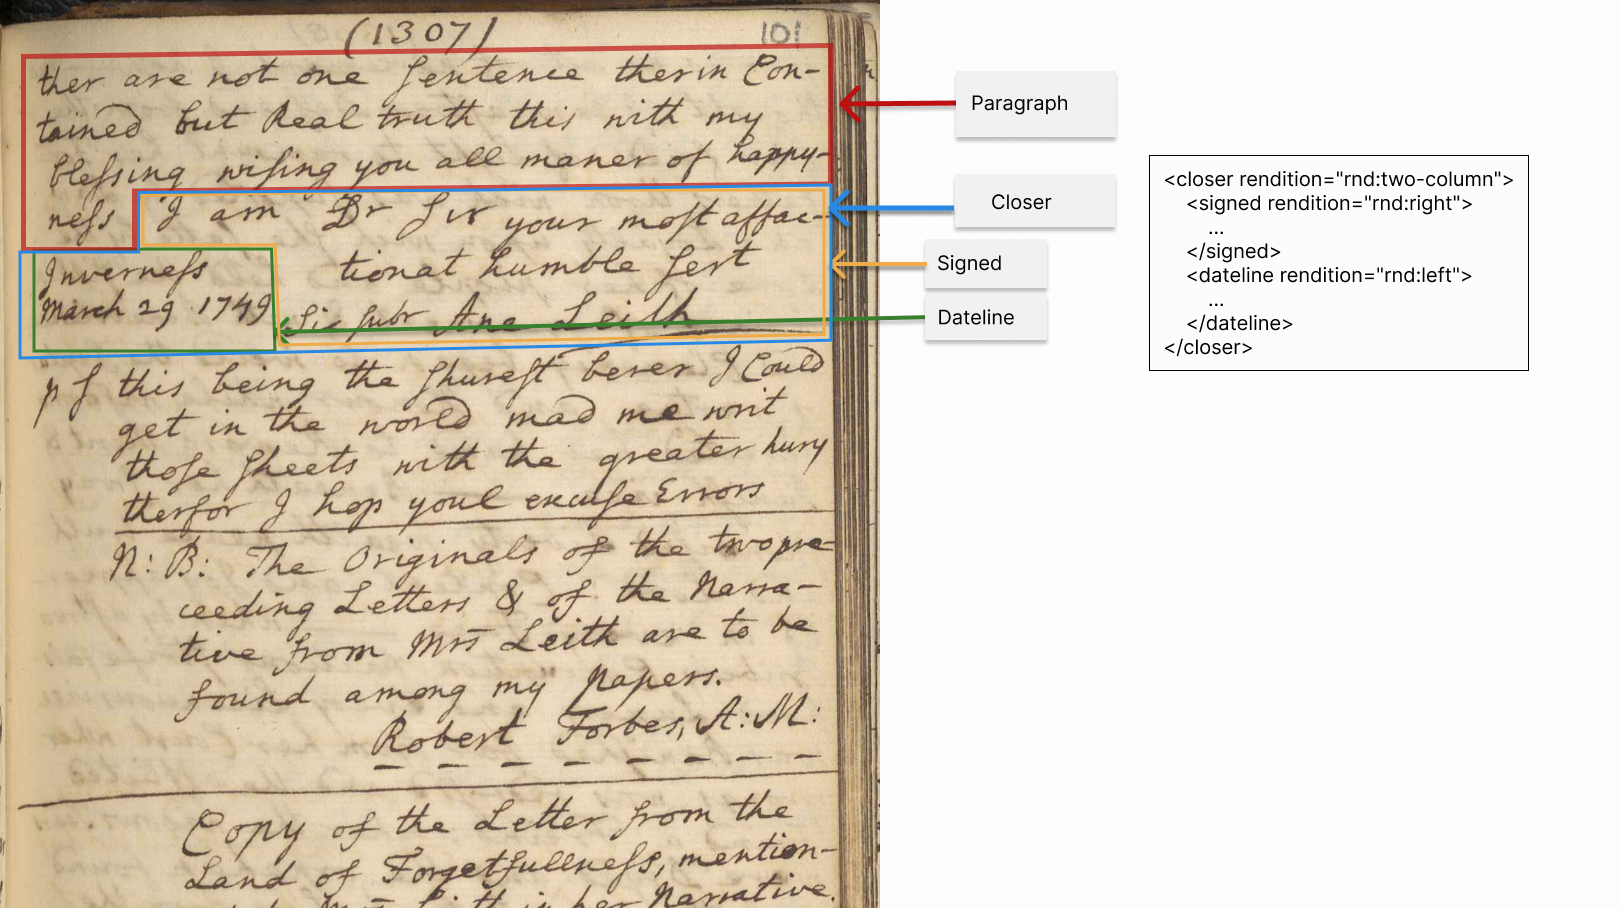 (1307)
101
ther are not one sentence therin Con-
tained but Real truth this with my
blessing wising you all maner of happy-
ness I am Dr Sir your most affac-
Inverness tionat humble sert
March 29 1749 Sic subr Ane Leith
p s this being the shurest berer I Could
get in the world mad me writ
those sheets with the greater hury
therfor I hop youl excuse Errors
N: B: The Originals of the two pre-
ceeding Letters & of the Narra-
tive from Mrs Leith are to be
found among my Papers.
Robert Forbes, A: M:
Copy of the Letter from the
Land of Forgetfullness, mention-
in her Narrative.
Paragraph
Closer
Signed
Dateline
<closer rendition="rnd:two-column">
<signed rendition="rnd:right">
...
</signed>
<dateline rendition="rnd:left">
...
</dateline>
</closer>